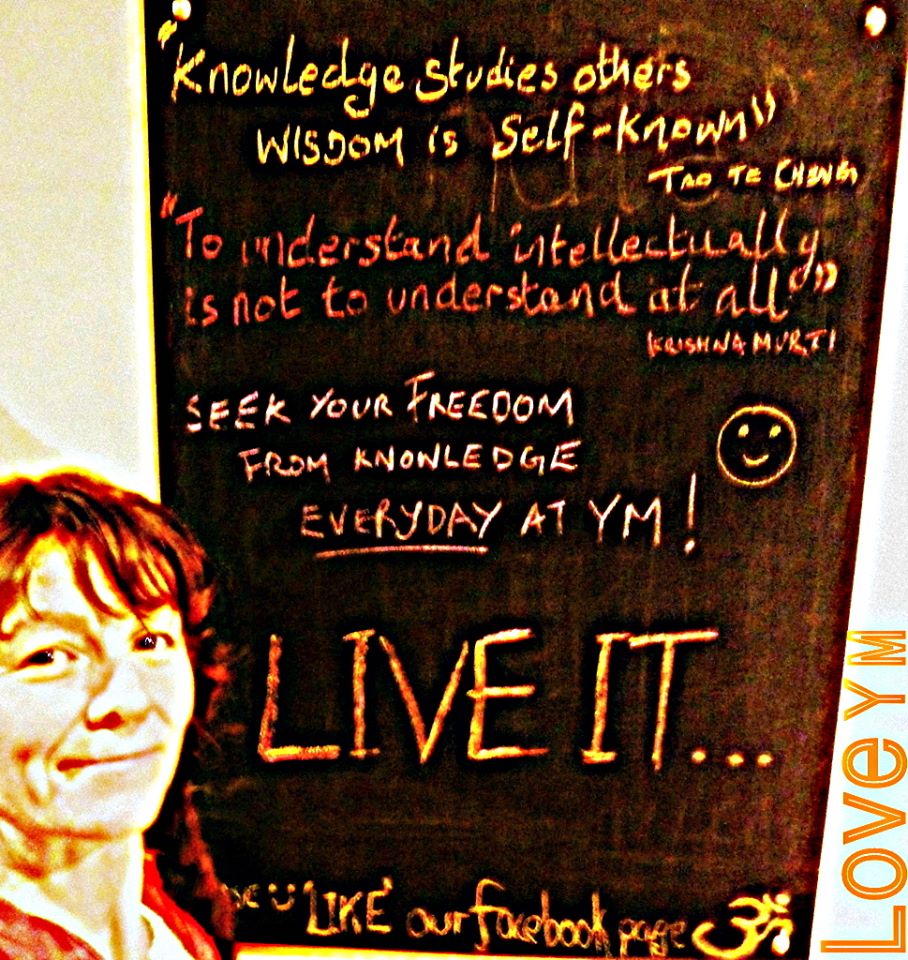 "Knowledge studies others
WISDOM is Self-Known"
TAO TE CHING
"To understand intellectually
is not to understand at all"
KRISHNAMURTI
SEEK YOUR FREEDOM
FROM KNOWLEDGE
EVERYDAY AT YM!
LIVE IT...
'LIKE' our facebook page ॐ
Love YM